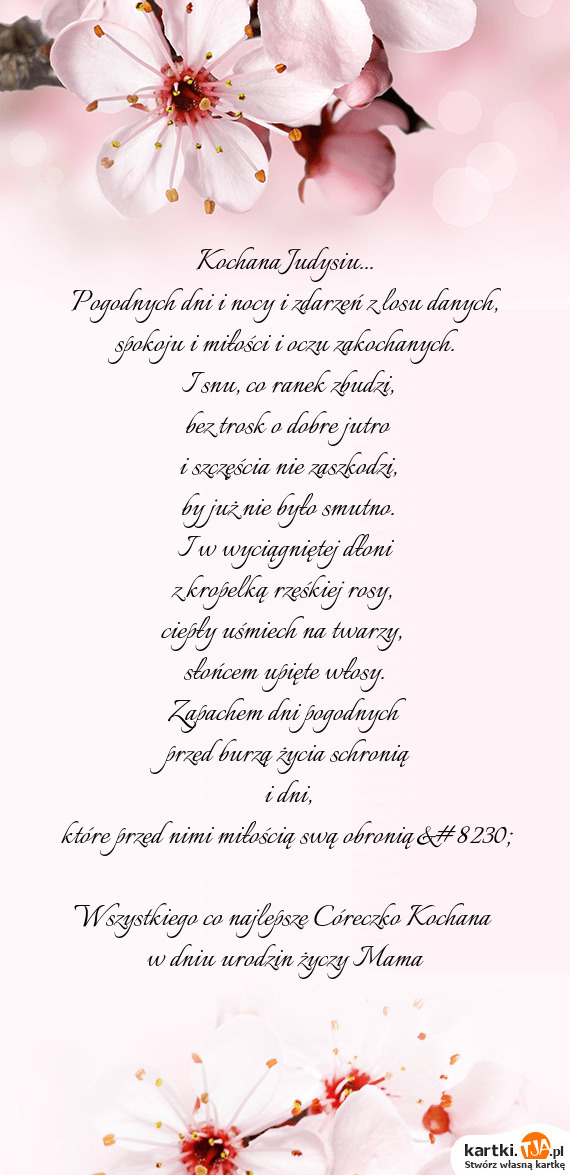 Kochana Judysiu...
Pogodnych dni i nocy i zdarzeń z losu danych,
spokoju i miłości i oczu zakochanych.
I snu, co ranek zbudzi,
bez trosk o dobre jutro
i szczęścia nie zaszkodzi,
by już nie było smutno.
I w wyciągniętej dłoni
z kropelką rześkiej rosy,
ciepły uśmiech na twarzy,
słońcem upięte włosy.
Zapachem dni pogodnych
przed burzą życia schronią
i dni,
które przed nimi miłością swą obronią &#8230;
Wszystkiego co najlepsze Córeczko Kochana
w dniu urodzin życzy Mama
kartki.TJA.pl
Stwórz własną kartkę